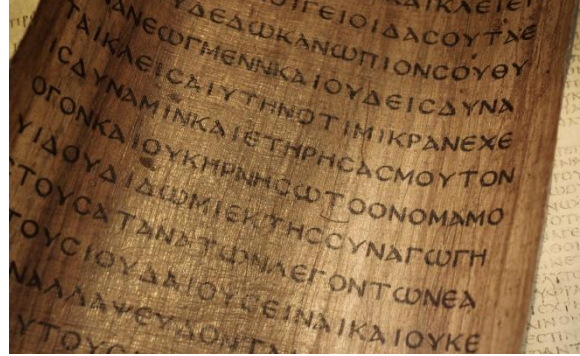 ΚΑΙΚΛΕΙΕΙ
ΓΕΙΟΙΔΑϹΟΥΤΑΕ
ΥΔΕΔΩΚΑΝΩΠΙΟΝϹΟΥΘΥ
ΑΝΕΩΓΜΕΝΝΚΑΙΟΥΔΕΙϹΔΥΝΑ
ΤΑΙΚΛΕΙϹΑΙΥΤΗΝΟΤΙΜΙΚΡΑΝΕΧΕ
ΙϹΔΥΝΑΜΙΝΚΑΙΕΤΗΡΗϹΑϹΜΟΥΤΟΝ
ΟΓΟΝΚΑΙΟΥΚΗΡΝΗϹΩΤΟΟΝΟΜΑΜΟ
ΥΙΔΟΥΔΙΔΩΜΙΕΚΤΗϹϹΥΝΑΓΩΓΗ
ϹΤΟΥϹΑΤΑΝΑΤΩΝΛΕΓΟΝΤΩΝΕΑ
ΤΟΥϹΙΟΥΔΑΙΟΥϹΕΙΝΑΙΚΑΙΟΥΚΕ
ΙΝΑΛΛΑΨΕΥΔΟΝΤΑΙ
ΥΤΟΥϹ